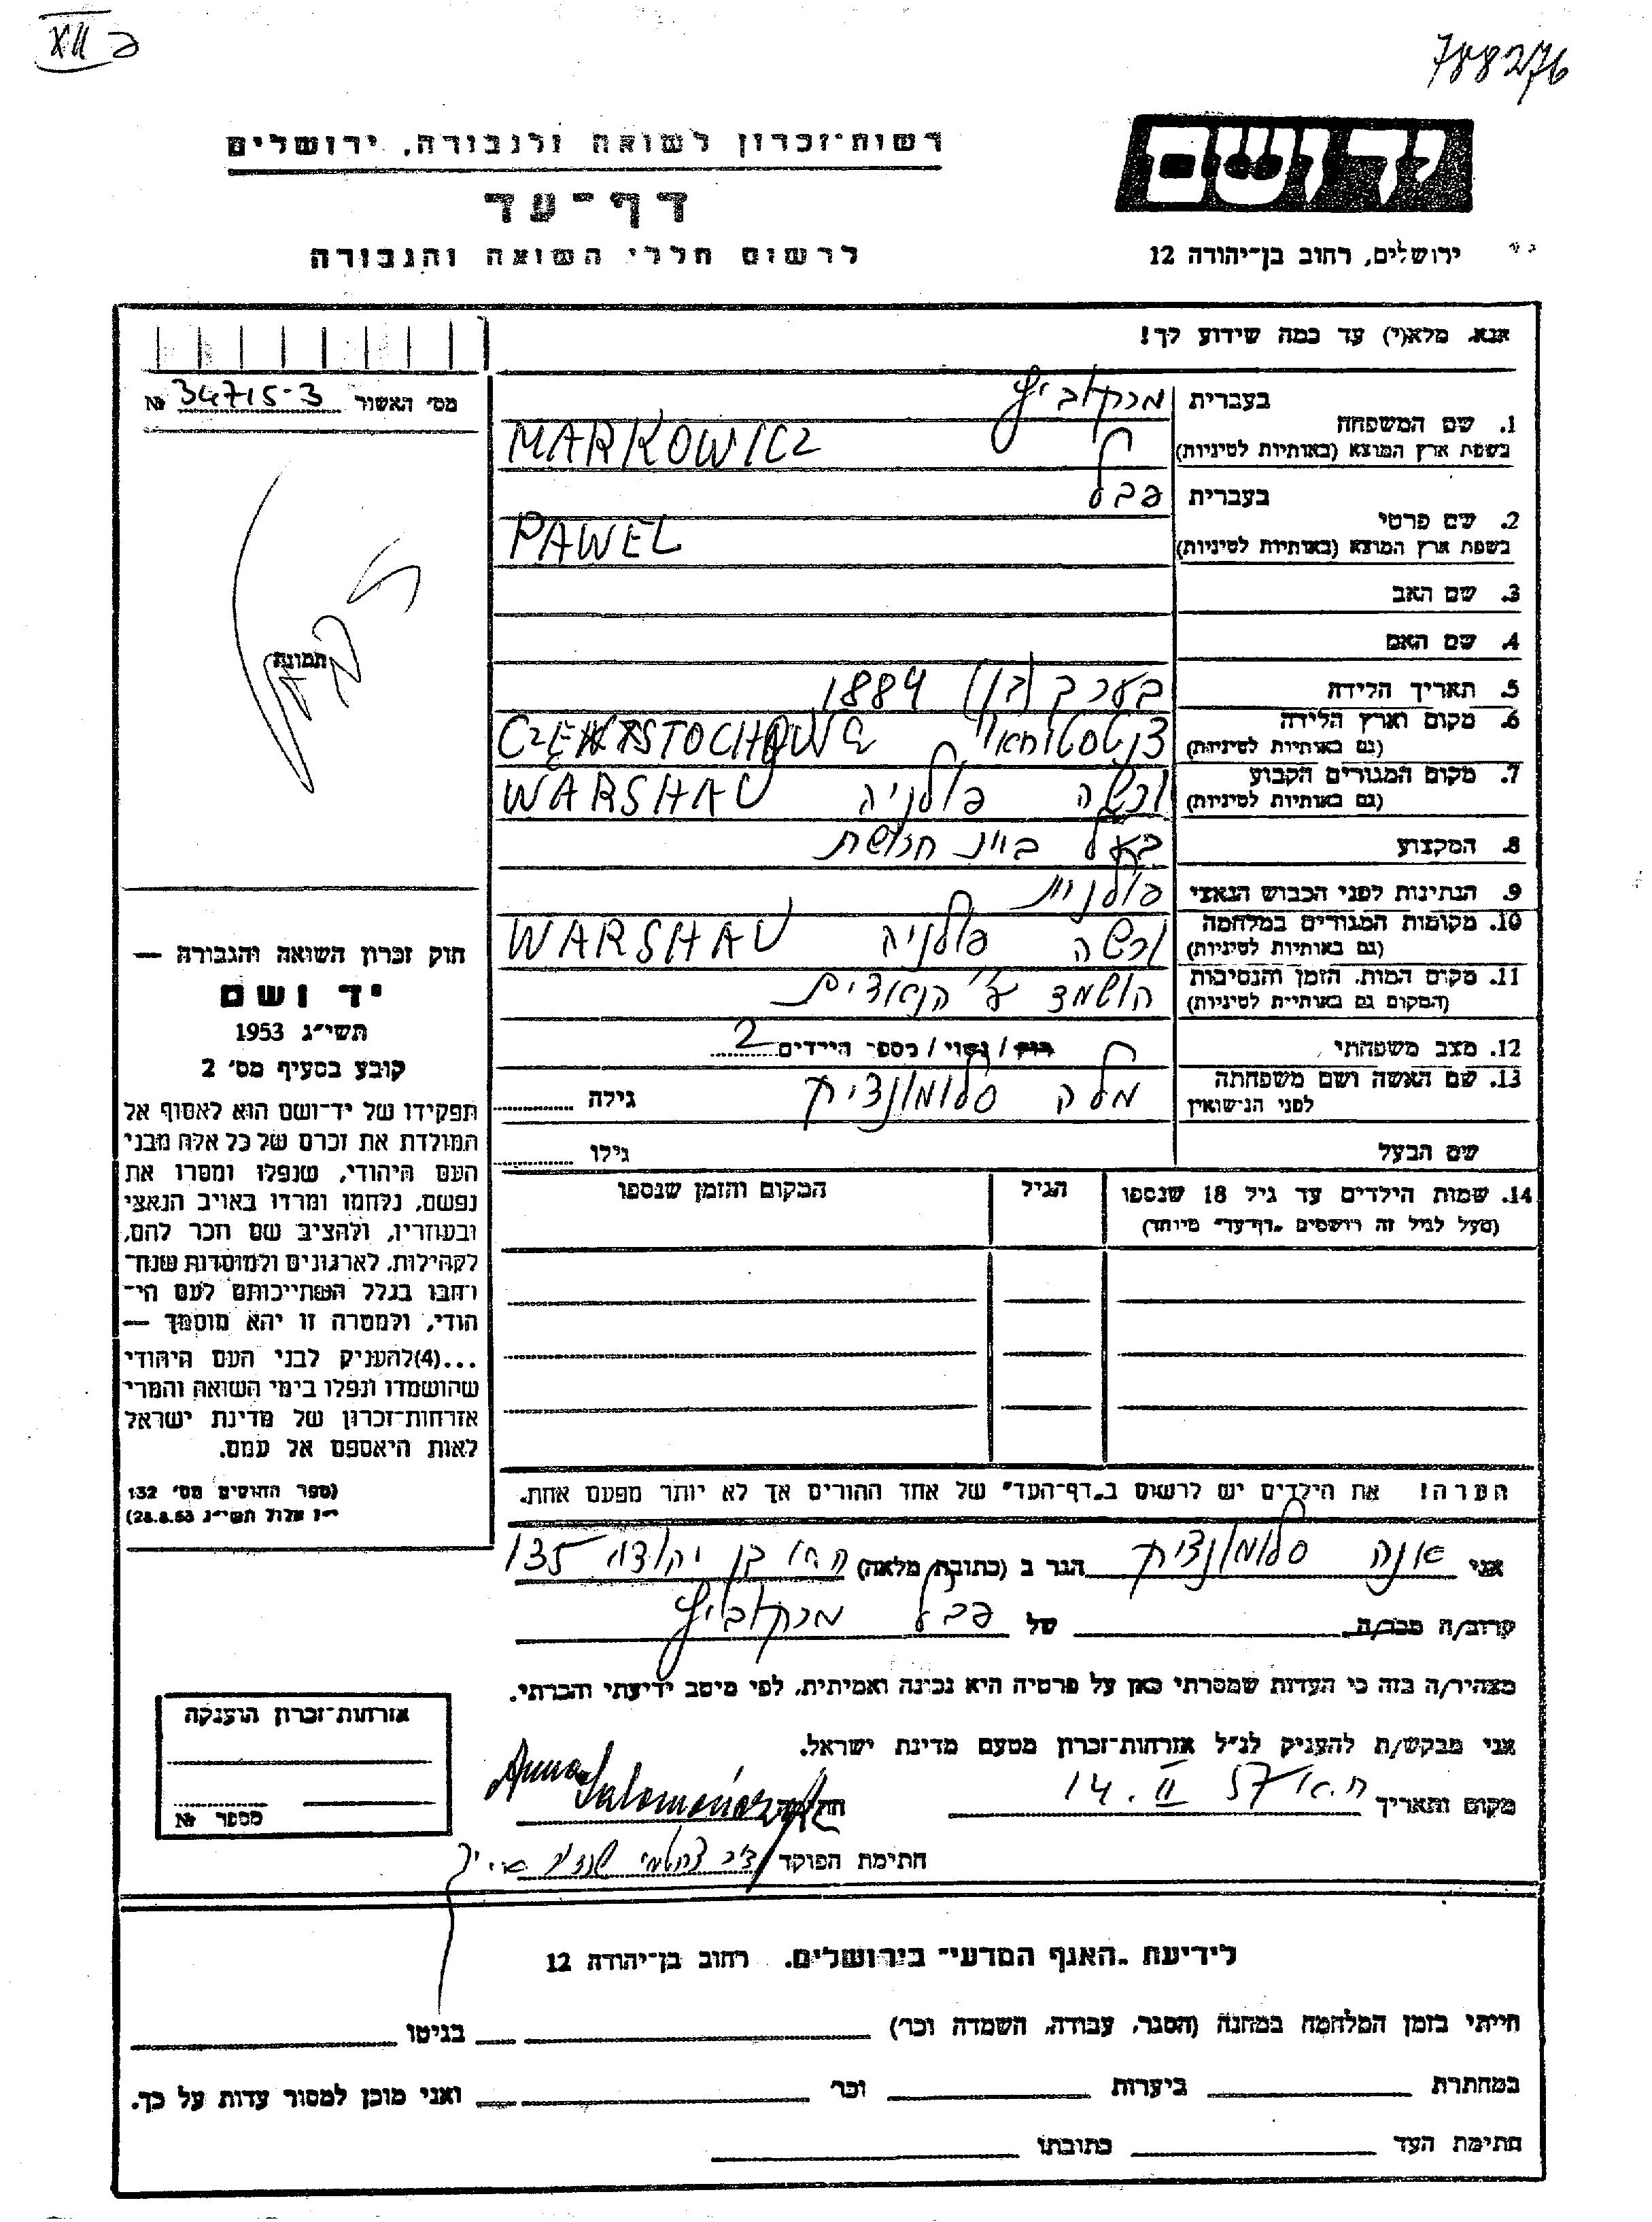 XII
788276
יד ושם
ירושלים, רחוב בן־יהודה 12
רשות־זכרון לשואה ולגבורה, ירושלים
דף־עד
לרשום חללי השואה והגבורה
אנא, מלא(י) עד כמה שידוע לך!
מס׳ האשור 34715-3 №
1. שם המשפחה
בעברית מרקוביץ
בשפת ארץ המוצא (באותיות לטיניות) MARKOWICZ
2. שם פרטי
בעברית פבל
בשפת ארץ המוצא (באותיות לטיניות) PAWEL
3. שם האב
4. שם האם
5. תאריך הלידה בערך 1884
6. מקום וארץ הלידה
(גם באותיות לטיניות)
7. מקום המגורים הקבוע ורשה פולניה WARSHAU
(גם באותיות לטיניות)
8. המקצוע חרושת
9. הנתינות לפני הכבוש הנאצי פולנית
10. מקומות המגורים במלחמה ורשה פולניה WARSHAU
(גם באותיות לטיניות)
11. מקום המות, הזמן והנסיבות הושמד ע״י הנאצים
(המקום גם באותיות לטיניות)
12. מצב משפחתי רווק / נשוי / מספר הילדים 2
13. שם האשה ושם משפחתה מלה סלומונוביץ גילה
לפני הנישואין
שם הבעל גילו
14. שמות הילדים עד גיל 18 שנספו הגיל המקום והזמן שנספו
(מעל לגיל זה רושמים "דף־עד" מיוחד)
תמונה
חוק זכרון השואה והגבורה —
יד ושם
תשי״ג 1953
קובע בסעיף מס׳ 2
תפקידו של יד־ושם הוא לאסוף אל
המולדת את זכרם של כל אלה מבני
העם היהודי, שנפלו ומסרו את
נפשם, נלחמו ומרדו באויב הנאצי
ובעוזריו, ולהציב שם וזכר להם,
לקהילות, לארגונים ולמוסדות שנח־
רבו בגלל השתייכותם לעם הי־
הודי, ולמטרה זו יהא מוסמך —
...(4)להעניק לבני העם היהודי
שהושמדו ונפלו בימי השואה והמרי
אזרחות־זכרון של מדינת ישראל
לאות היאספם אל עמם.
(ספר החוקים מס׳ 132
י״ז אלול תשי״ג 28.8.53)
הערה! את הילדים יש לרשום ב"דף־העד" של אחד ההורים אך לא יותר מפעם אחת.
אני אנה הגר ב (כתובת מלאה) בן יהודה 135
קרוב/ה מכר/ה של פבל מרקוביץ
מצהיר/ה בזה כי העדות שמסרתי כאן על פרטיה היא נכונה ואמיתית, לפי מיטב ידיעתי והכרתי.
אני מבקש/ת להעניק לנ״ל אזרחות־זכרון מטעם מדינת ישראל.
מקום ותאריך 14. II 57 חתימה Anna
חתימת הפוקד
אזרחות־זכרון הוענקה
מספר №
לידיעת "האגף המדעי" בירושלים. רחוב בן־יהודה 12
הייתי בזמן המלחמה במחנה (הסגר, עבודה, השמדה וכר׳) בגיטו
במחתרת ביערות וכר׳ ואני מוכן למסור עדות על כך.
חתימת העד כתובתו